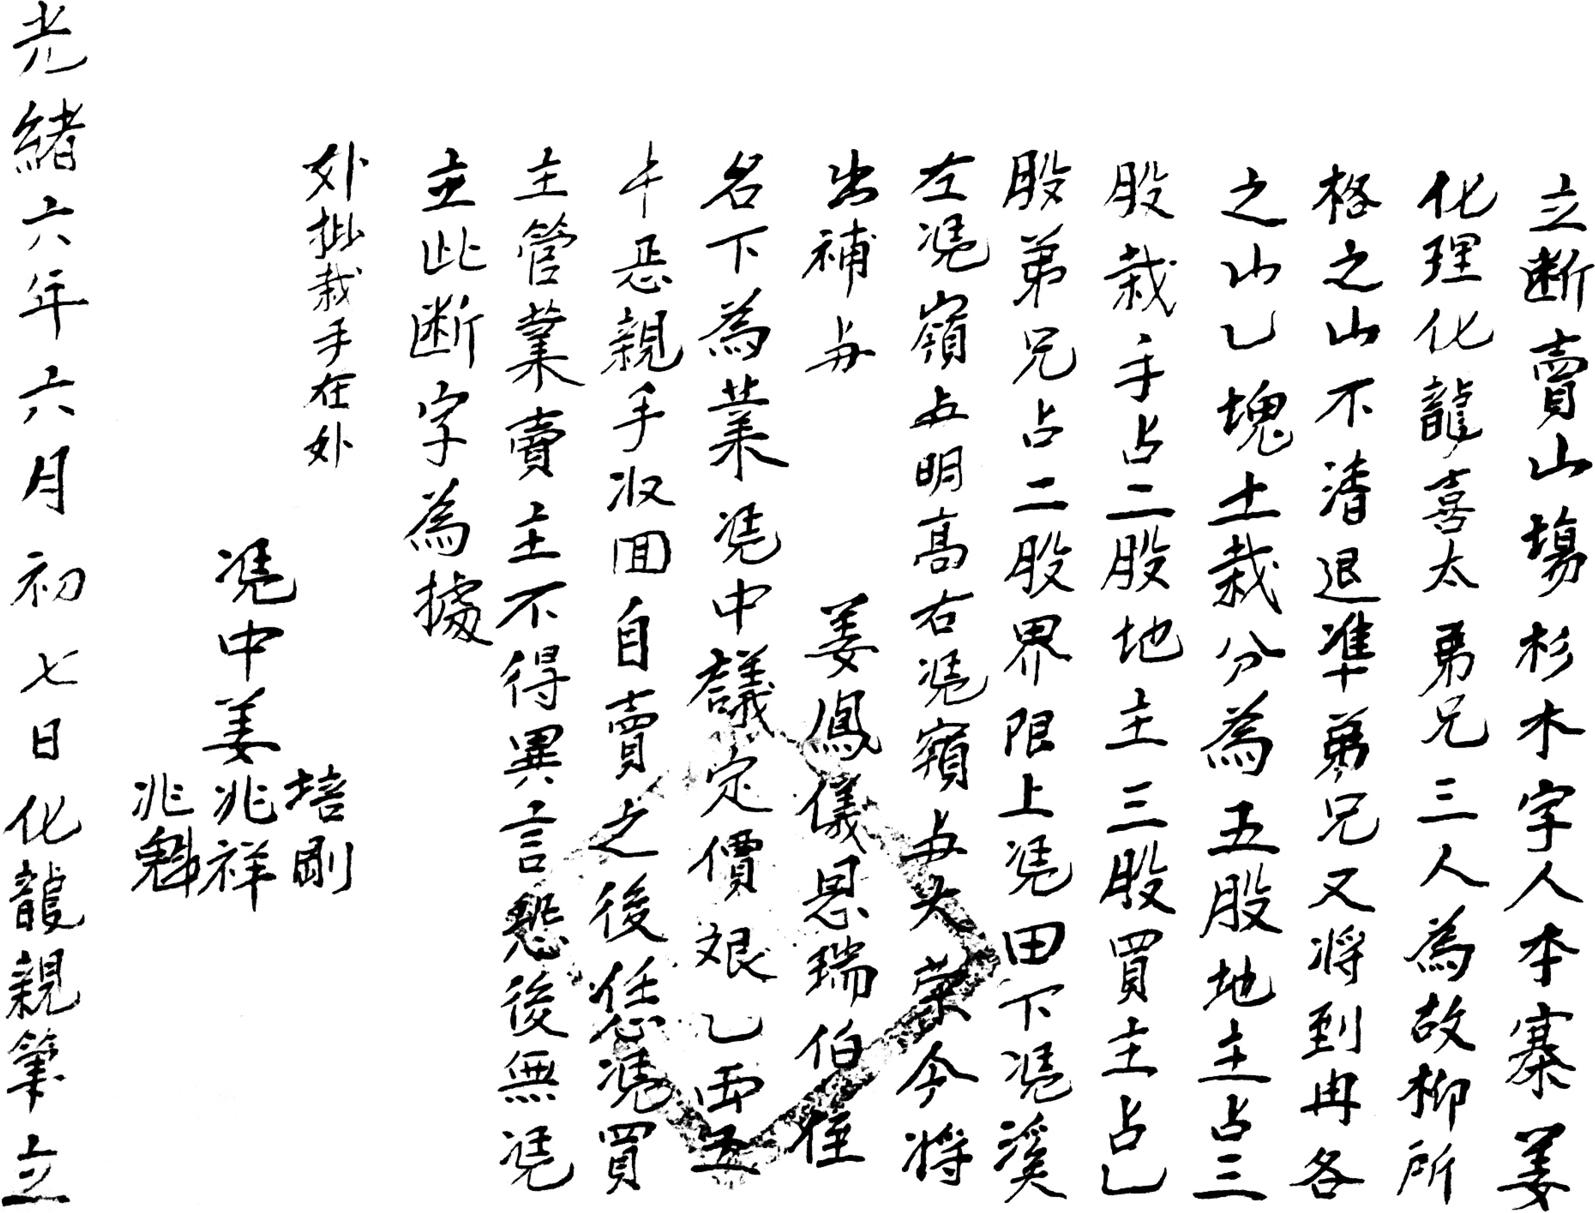 立断賣山塲杉木字人本寨姜
化理化龍喜太弟兄三人為故柳所
格之山不清退準弟兄又將到冉各
之山乚塊土栽分為五股地主占三
股栽手占二股地主三股買主占乚
股弟兄占二股界限上凴田下凴溪
左凴嶺與明高右凴嶺與大荣今将
出補與　姜鳳儀恩瑞伯侄
名下為業凴中議定價艮乚両五
卡恶親手収回自賣之後恁凴買
主管業賣主不得異言恐後無凴
立此断字為據
外批栽手在外
凴中姜
培剛
兆祥
兆魁
光緒六年六月初七日化龍親筆立